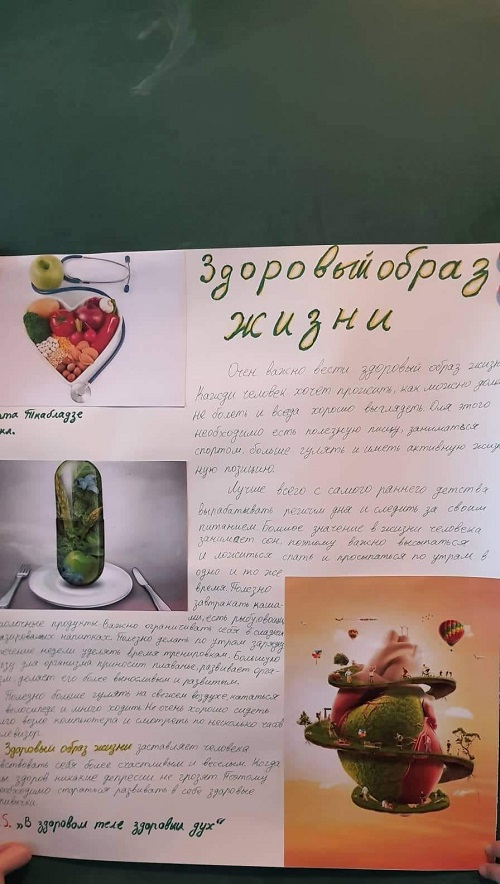 Здоровый образ
жизни
Очен важно вести здоровый образ жизн
Каждй человек хочет прожить, как можно дол
не болеть и всегда хорошо выглядеть. Для этого
необходимо есть полезную пищу, заниматься
спортом, больше гулять и иметь активную жизн
ную позицию.
Ткабладзе
кл.
Лучше всего с самого раннего детства
вырабатывать режим дна и следить за своим
питанием. Болшое значение в жизни человека
занимает сон, поэтому важно высыпаться
и ложиться спать и просыпаться по утрам в
одно и то же
время. Полезно
завтракать каша-
ми, есть
молочные продукты. Важно ограничивать себя в сладких
газированых напитках. Полезно делать по утрам зарядку
течение недели уделять время тренировкам. Большую
зу для организма приносит плавание, развивает орга-
зм, делает его более выносливым и развитым.
Полезно болше гулять на свежем воздухе, кататься
велосипеде и много ходить. Не очень хорошо сидеть
го возле компьютера и смотреть по несколько часов
левизер.
Здоровый образ жизни заставляет человека
вствовать себя более счастливым и веселым. Когда
ы здоров никакие депрессии не грозят. Поэтому
обходимо стараться развивать в себе здоровые
ривычки.
S. „В здоровом теле здоровый дух“